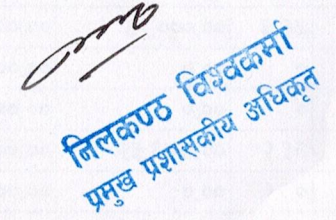 निलकण्ठ विश्वकर्मा
प्रमुख प्रशासकीय अधिकृत